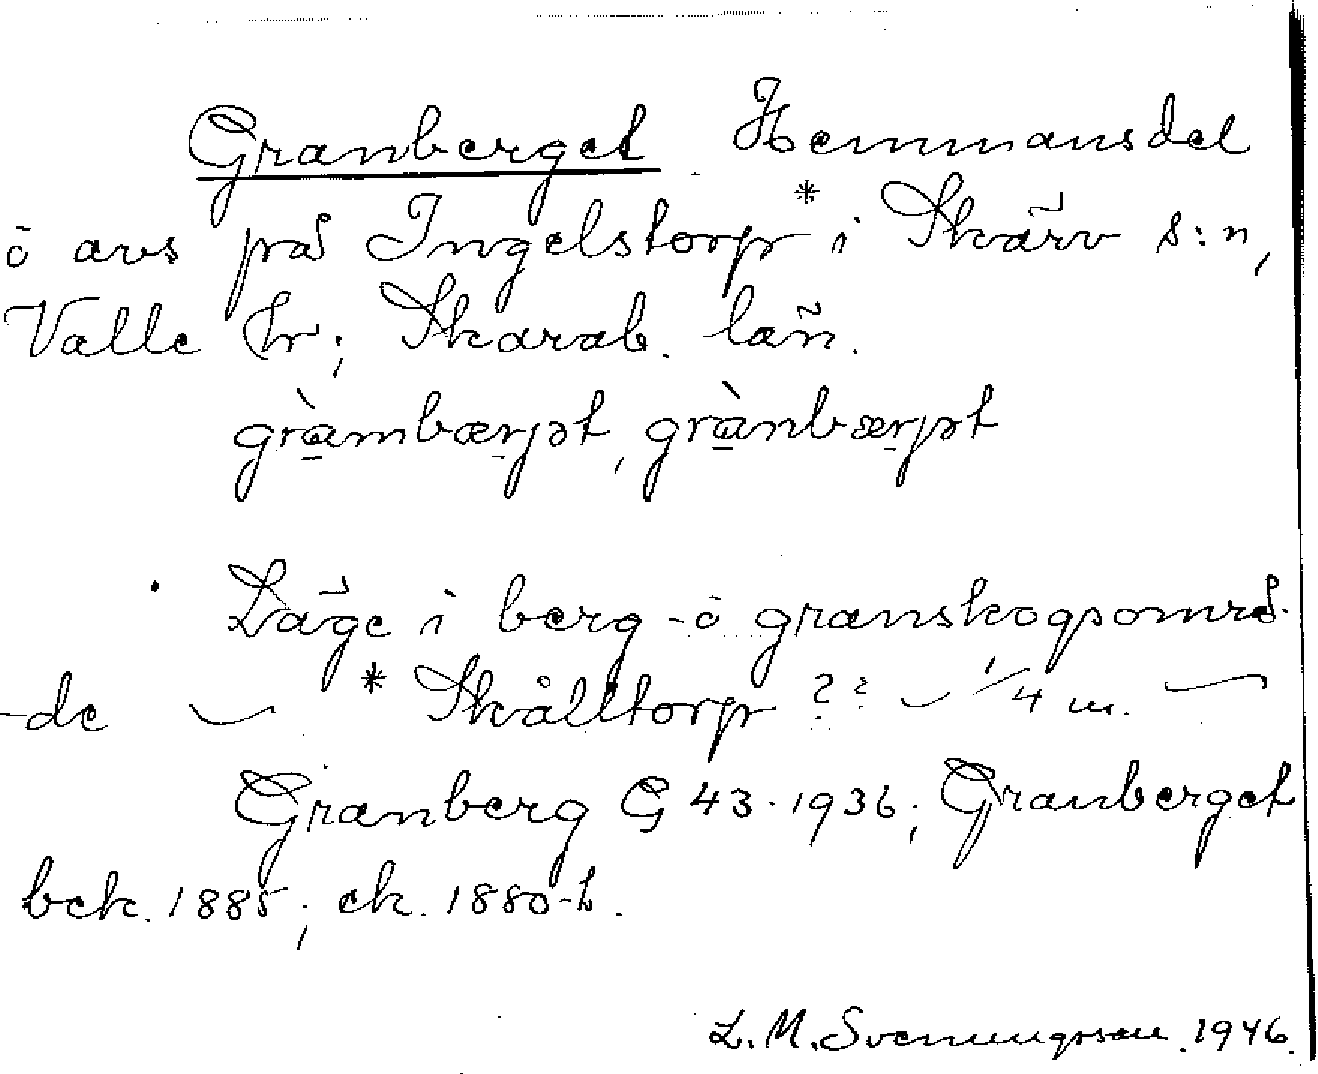 Granberget Hemmansdel
ö avs på *Ingelstorp i Skärv s:n,
Valle hr; Skarab. län.
gràmbærjət, grànbærjət
Läge i berg- ö granskogsområ-
-de *Skålltorp ?? 1/4 m.
Granberg G 43. 1936; Granberget
bek. 1885; ek. 1880-t.
L. M. Svenungsson. 1946.